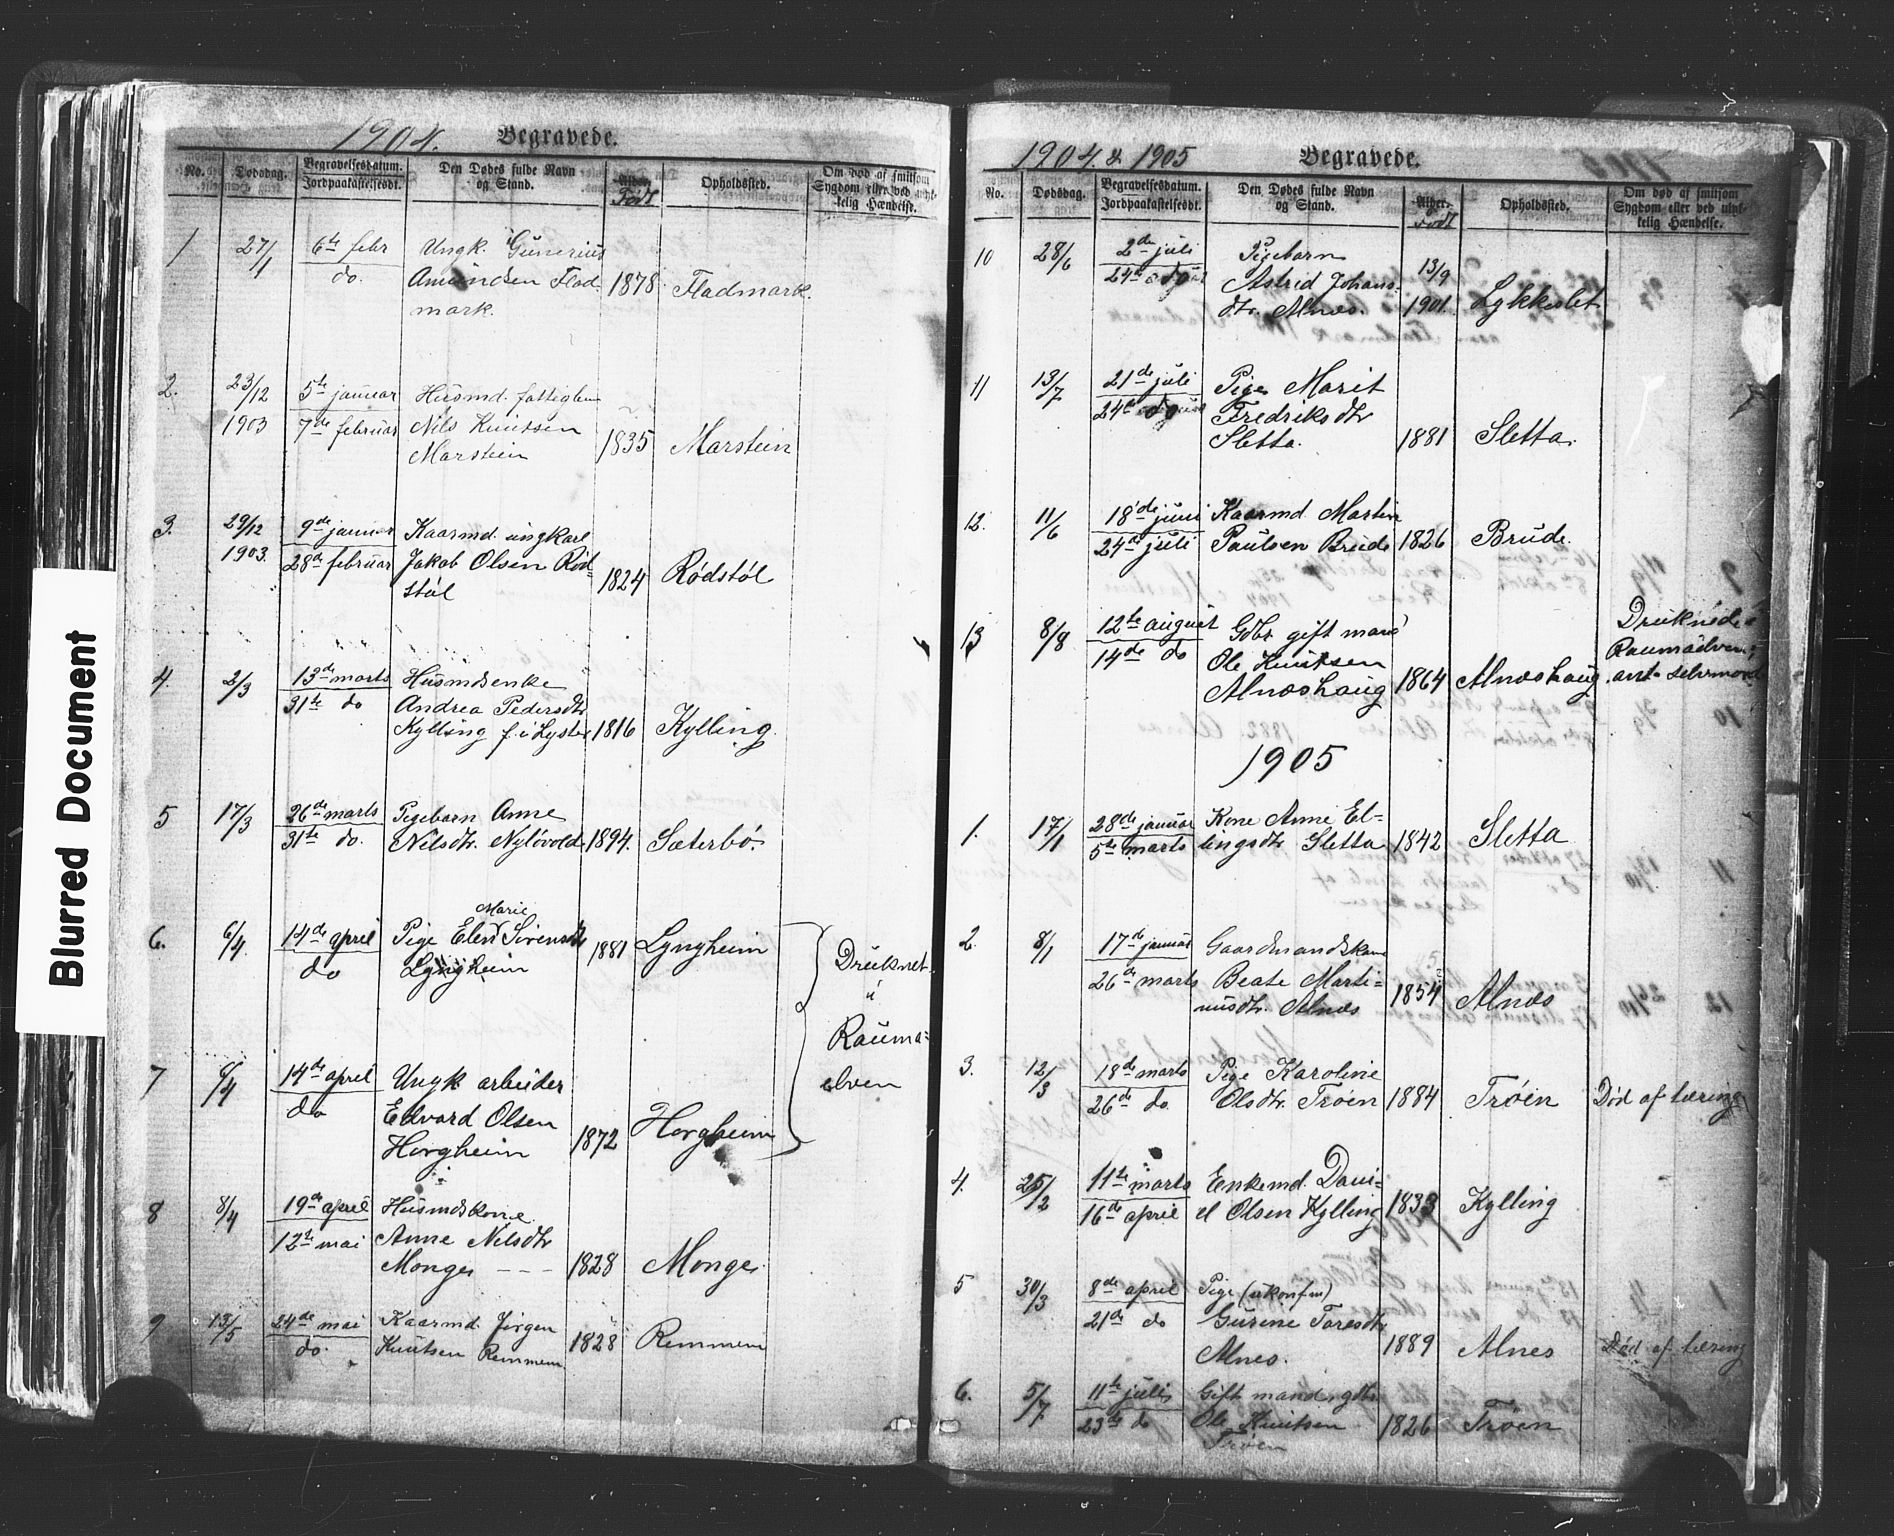 1904. Begravede.
No. Dødsdag. Begravelsesdatum. Jordpaakastelsesdt. Den Dødes fulde Navn og Stand. Alder. Født Opholdssted. Om død af smitsom Sygdom eller ved ulykkelig Hændelse.
1 27/1 6te febr Ungk. Gunerius
do. Amundsen Flad- 1878 Fladmark.
mark.
2. 23/12 5te januar Husmd. fattiglem
1903 7de februar Nils Knutsen 1835 Marstein
Marstein
3. 29/12 9de januar Kaarmd. ungkarl
1903. 28de februar Jakob Olsen Rød- 1824 Rødstøl
støl
4. 2/3 13de marts Husmdsenke
31te do Andrea Pedersdtr
Kylling f. i Lyster 1816 Kylling.
5 17/3 26de marts Pigebarn Anne
31te do. Nilsdtr. Nyløvold 1894. Sæterbø.
6. 6/4 14de april Pige Elen Marie Sivertsdtr 1881 Lyngheim Druknet
do Lyngheim i
Rauma-
elven
7 6/4 14de april Ungk arbeider
do Edvard Olsen
Horgheim 1872 Horgheim
8 8/4 19de april Husmdskone
12te mai Anne Nilsdtr
Monge - - - 1828 Monge.
9 13/5 24de mai Kaarmd Jørgen
do. Knutsen Remmem 1828 Remmem
1904. & 1905 Begravede.
No. Dødsdag. Begravelsesdatum. Jordpaakastelsesdt. Den Dødes fulde Navn og Stand. Alder. Født Opholdssted. Om død af smitsom Sygdom eller ved ulykkelig Hændelse.
10 28/6 2de juli Pigebarn 13/9
24de do Astrid Johans-
dtr. Alnæs. 1901. Lykkeslet
11 13/7 21de juli Pige Marit
24de do Fredriksdtr
Sletta. 1881 Sletta.
12. 11/6 18de juni Kaarmd. Martin
24de juli Paulsen Brude 1826 Brude.
13 8/8 12te august Gdbr. gift mand Druknede i
14de do Ole Knutsen Raumaelven,
Alnæshaug 1864 Alnæshaug ant. selvmord
1905
1. 17/1 28de januar Kone Anne El-
5te marts lingsdtr Sletta 1842 Sletta
2. 8/1 17de januar Gaardmandskone
26de marts Beate Marti- 1854 Alnæs
nusdtr. Alnæs
3. 12/3 18de marts Pige Karoline
26de do Olsdtr. Trøen 1884 Trøen Død af tæring
4. 25/2 11te marts Enkemd. Dani-
16de april el Olsen Kylling 1833 Kylling
5 30/3 8de april Pige (ukonfm)
21de do Gurine Toresdtr
Alnes. 1889 Alnes Død af tæring
6. 5/7. 11te juli Gift mand, gdbr.
23de do Ole Knutsen 1826 Trøen
Trøen
Blurred Document